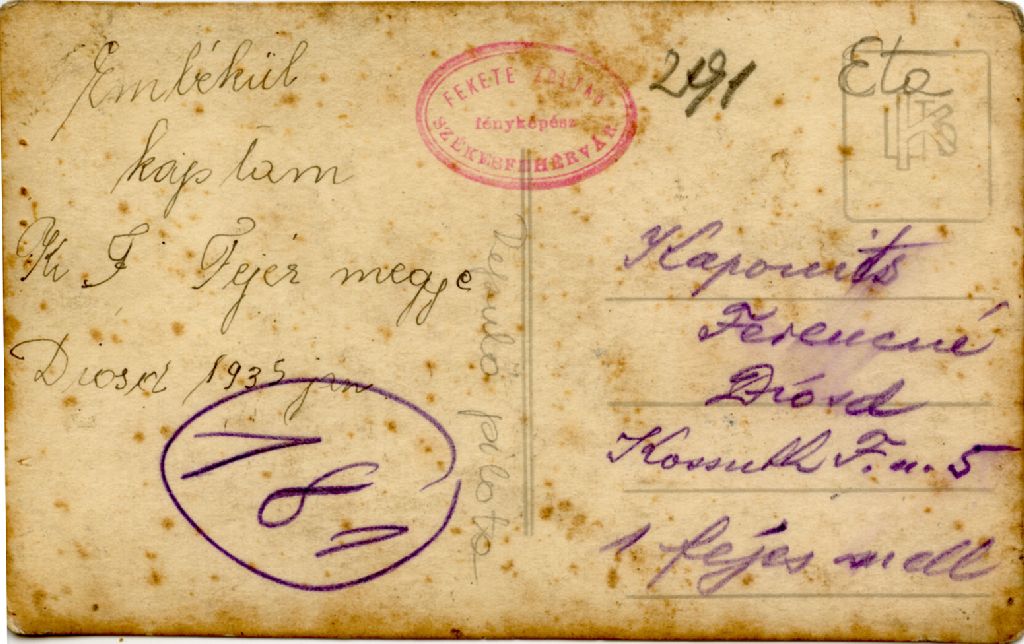 Emlékül
kaptam
K F Fejér megye
Diósd 1935 jun
181
FEKETE ZOLTÁN
fényképész
SZÉKESFEHÉRVÁR
Repülő pilota
2191
Eta
Kaponits
Ferencné
Diósd
Kossuth F. u. 5
1 fejes mell